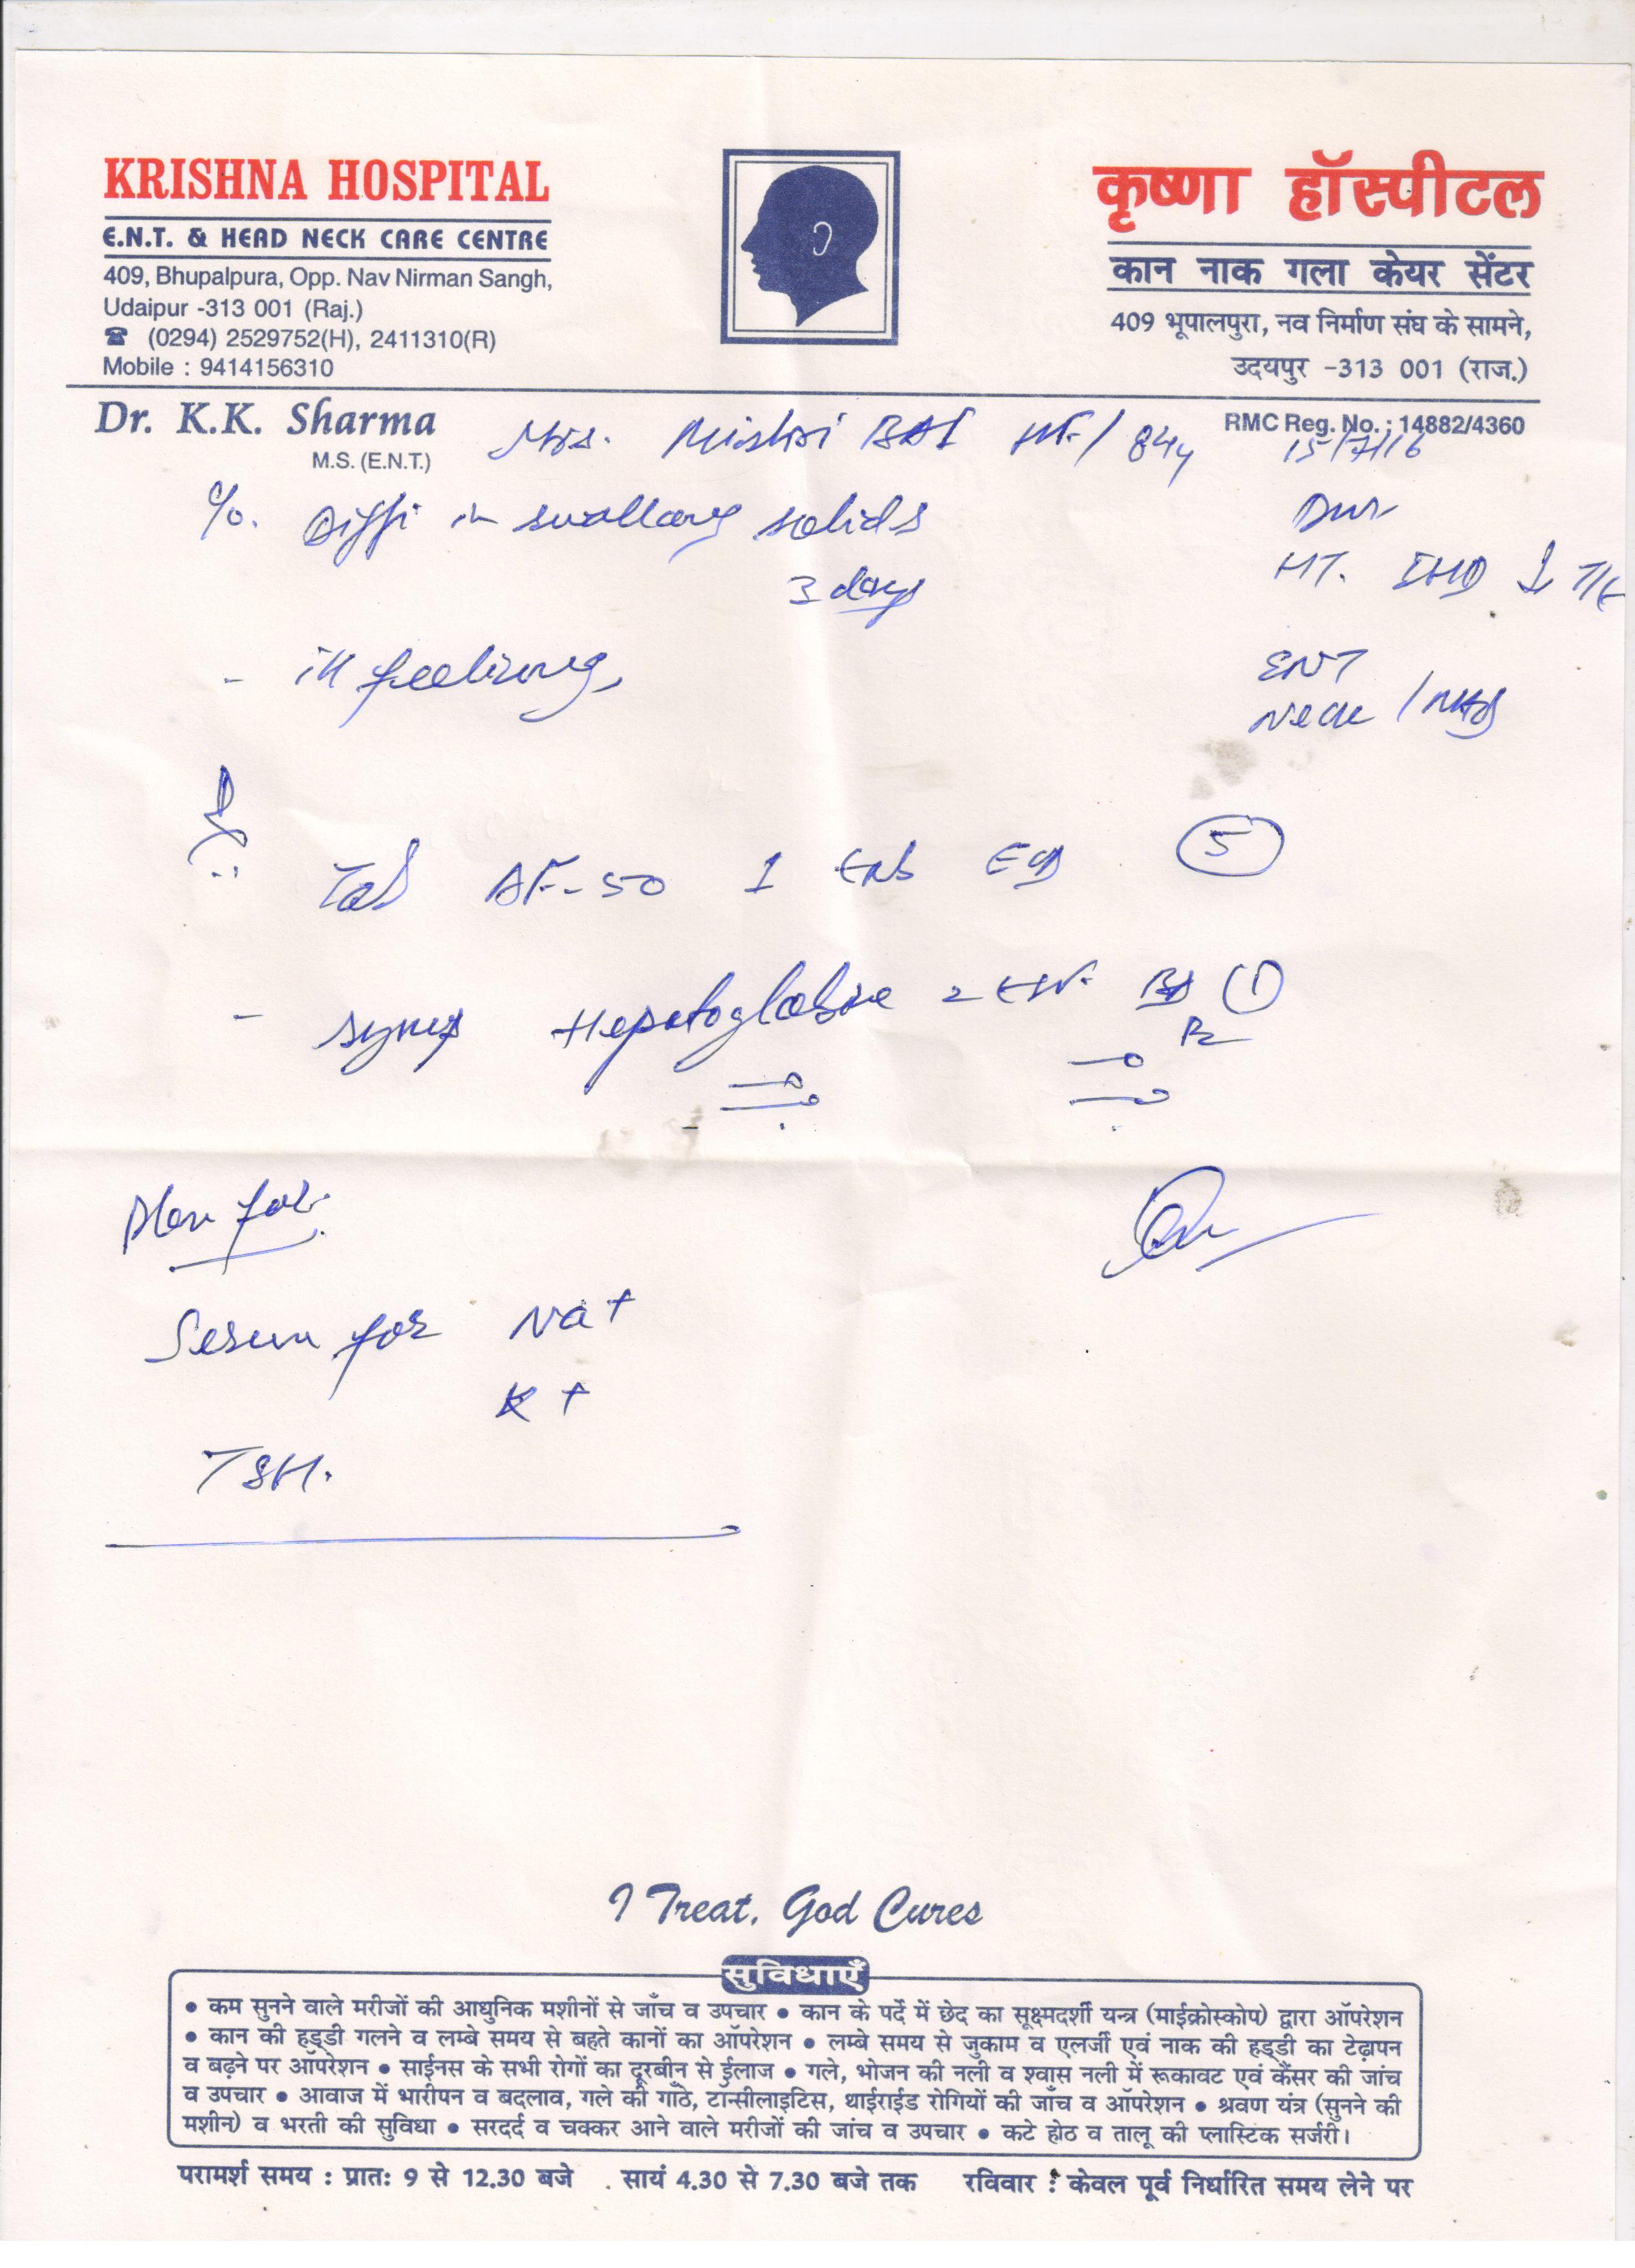 KRISHNA HOSPITAL
E.N.T. & HEAD NECK CARE CENTRE
409, Bhupalpura, Opp. Nav Nirman Sangh,
Udaipur -313 001 (Raj.)
☎ (0294) 2529752(H), 2411310(R)
Mobile : 9414156310
कृष्णा हॉस्पीटल
कान नाक गला केयर सेंटर
409 भूपालपुरा, नव निर्माण संघ के सामने,
उदयपुर -313 001 (राज.)
Dr. K.K. Sharma
M.S. (E.N.T.)
RMC Reg. No. : 14882/4360
Mrs. Mishri BAI / 84y
15/7/16
c/o. Diffi in swallowing solids
3 days
HT. IHD
- ill feeling
ENT
Neck / NAD
Tab AF-50 1 5
- syrup Hepatoglobine 2 BD 1
Plan for
Serum for Na+
K+
TSH.
I Treat, God Cures
सुविधाएँ
• कम सुनने वाले मरीजों की आधुनिक मशीनों से जाँच व उपचार • कान के पर्दे में छेद का सूक्ष्मदर्शी यन्त्र (माईक्रोस्कोप) द्वारा ऑपरेशन
• कान की हड्डी गलने व लम्बे समय से बहते कानों का ऑपरेशन • लम्बे समय से जुकाम व एलर्जी एवं नाक की हड्डी का टेढ़ापन
व बढ़ने पर ऑपरेशन • साईनस के सभी रोगों का दूरबीन से ईलाज • गले, भोजन की नली व श्वास नली में रूकावट एवं कैंसर की जांच
व उपचार • आवाज में भारीपन व बदलाव, गले की गाँठे, टॉन्सीलाइटिस, थाईराईड रोगियों की जाँच व ऑपरेशन • श्रवण यंत्र (सुनने की
मशीन) व भरती की सुविधा • सरदर्द व चक्कर आने वाले मरीजों की जांच व उपचार • कटे होठ व तालू की प्लास्टिक सर्जरी।
परामर्श समय : प्रातः 9 से 12.30 बजे . सायं 4.30 से 7.30 बजे तक रविवार : केवल पूर्व निर्धारित समय लेने पर